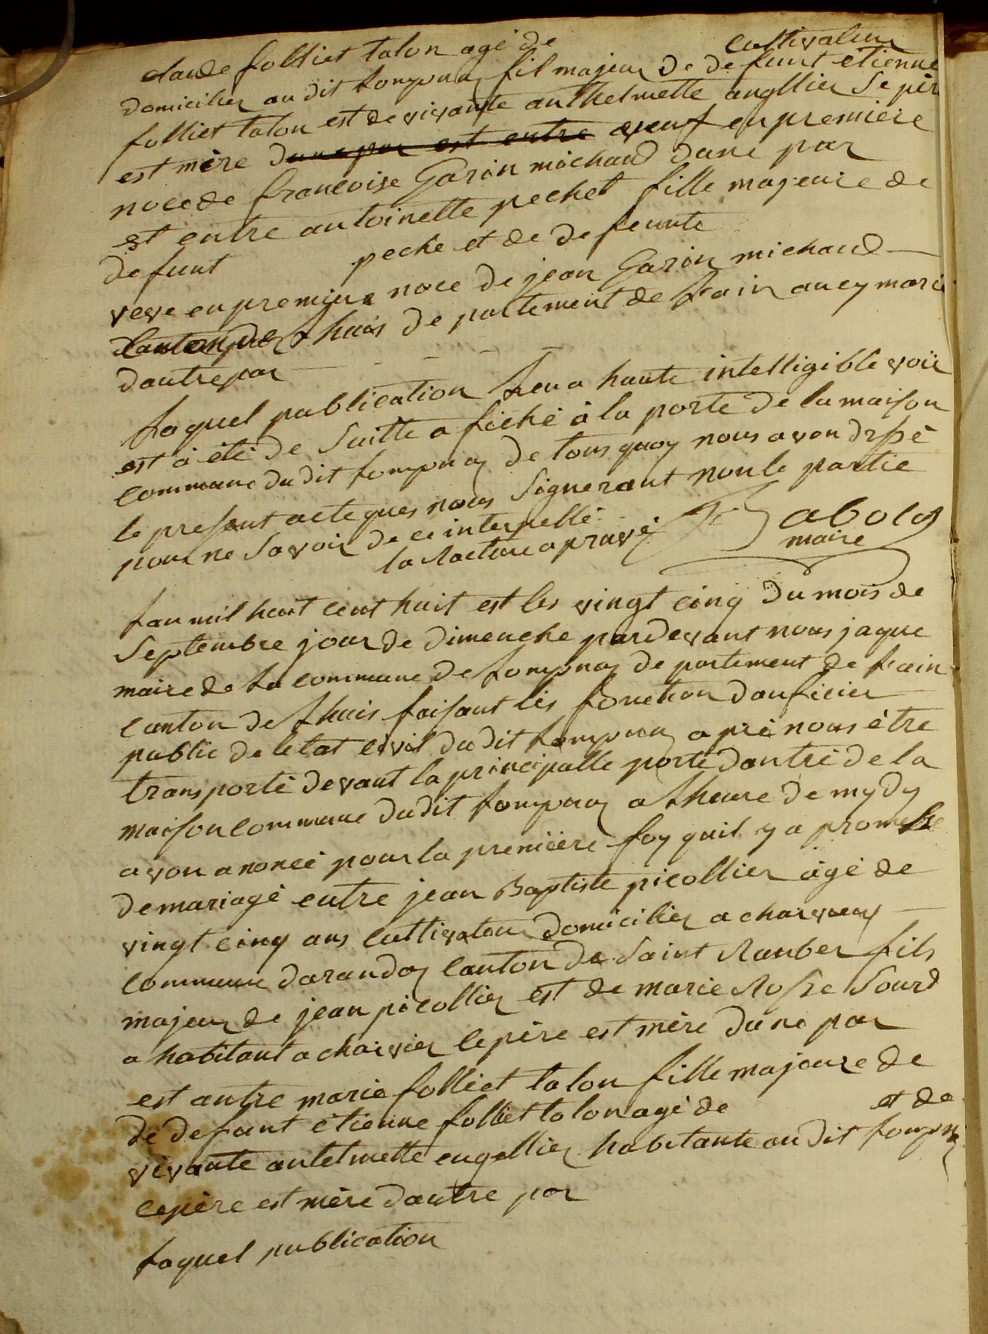 claude folliet talon agé de cultivateur
domicilier au dit lompnay fil majeur de defunt etienne
folliet talon est de vivante anthelmette angllier se pèr
est mère dune par est entre veuf en premiere
noce de francoise Garin michaud dune par
est entre antoinette pechet fille majeure de
defunt peche et de defeunte
veve en premiere noce de jean Garin michaud
canton de lhuis departement de lain au cy marie
dautre par
laquel publication leu a haute intelligible voix
est a été de suitte afiché à la porte de la maison
commune du dit lompnay de tous quoy nous avon drssé
le present acte ques nous signeront non le partie
pour ne savoir de ce interpellé
la racture apruvé
abolos
maire
lan mil huit cent huit est les vingt cinq du mois de
septembre jour de dimenche pardevant nous jaque
maire de la commune de lompnay departement de lain
canton de lhuis faisant les fonction dauficier
public de letat civil du dit lompnay aprè nous être
transporté devant la principalle porte dantré de la
maison commune dudit lompnay a lheure de mydy
avon anoncé pour la première foy quil y a promesse
de mariagé entre jean Baptiste picollier âgé de
vingt cinq ans cultivateur domicilier a charvieux
commune darandas canton de saint Ranber fils
majeur de jean picollier est de marie Rosse Sourd
a habitant a charvier le père est mère dune par
est autre marie folliet talon fille majeure de
de defunt étienne folliet talon agé de et de
vivante antelmette engellier habitante au dit lompnay
ce père est mère dautre par
laquel publication